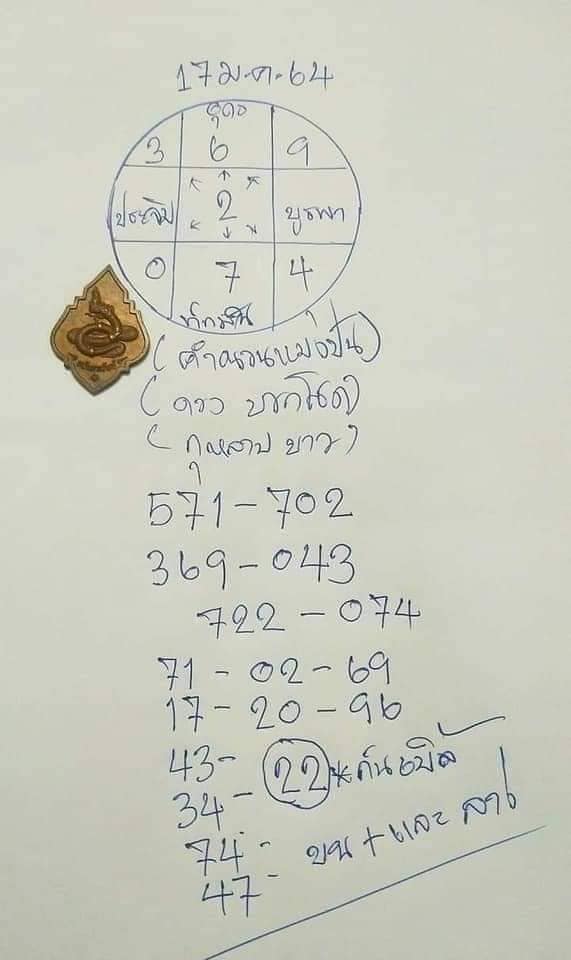 17 ม.ค. 64
อุดร
3 6 9
ประจิม 2 บูรพา
0 7 4
ทักษิณ
(คำนวนแม่งป่น)
(ดาว บาทโนต)
(กุหลาบ ขาว)
571 - 702
369 - 043
722 - 074
71 - 02 - 69
17 - 20 - 96
43 -
34 - 22 *
74 -
47 - บน + และ ล่าง